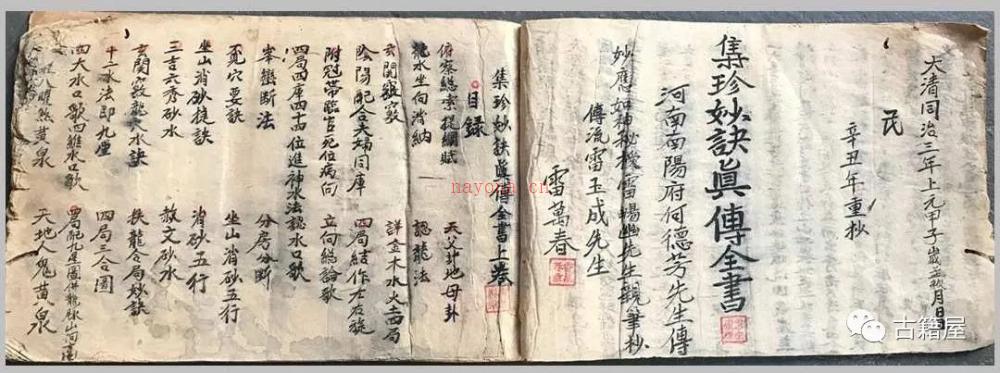 大清同治三年上元甲子歲孟秋月
民
辛丑年重抄
集珍妙訣眞傳全書
河南南陽府何德芳先生傳
妙應如神秘機雷暢幽先生親筆抄
傳流雷玉成先生
雷萬春
集珍妙訣眞傳全書上卷
目録
俯察總索提綱賦 天父卦地母卦
龍水坐向消納 認龍法
玄關竅竅 詳金木水火四局
陰陽配合夫婦同庫 四局結作左右旋
附冠帶臨官死位病向 立向總論歌
四局四庫四十四位進神水法認水口歌
峯巒斷法 分房分断
覔穴要訣 坐山消砂五行
坐山消砂捷訣 消砂五行
三吉六秀砂水 赦文砂水
玄関竅龍大水訣 扶龍合局妙訣
十二水法即九星 四局三合圖
四大水口歌四維水口歌
黄泉 天地人鬼苗泉
nayona.cn
古籍屋